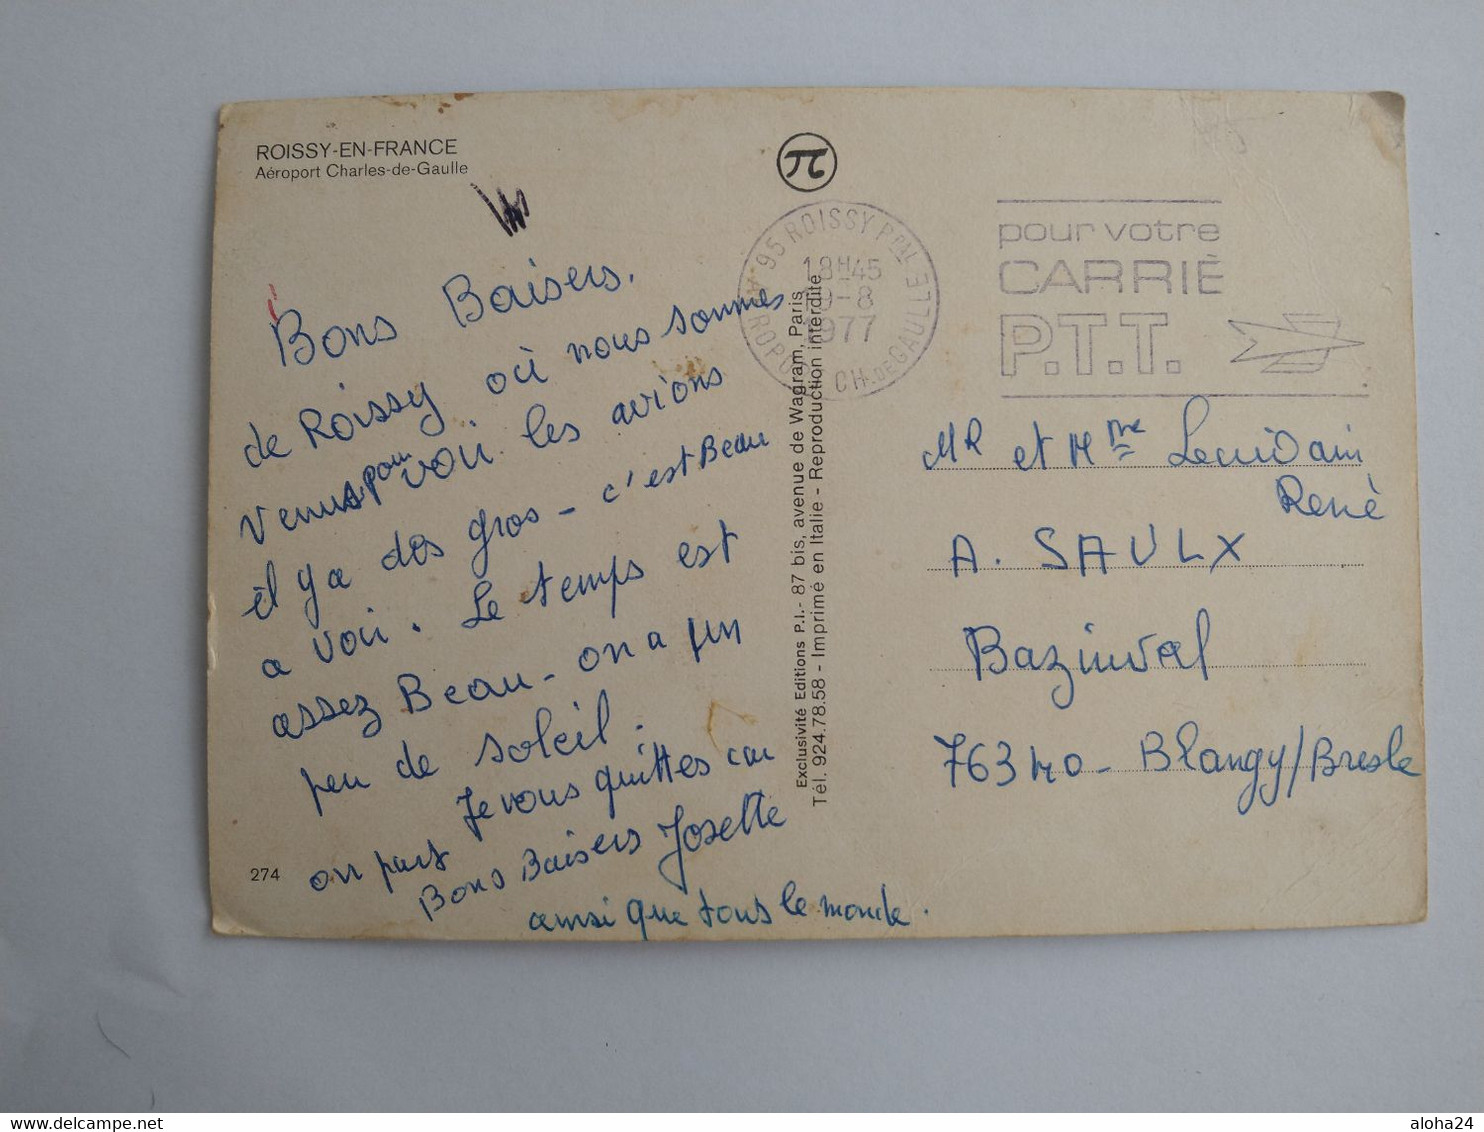 ROISSY-EN-FRANCE
Aéroport Charles-de-Gaulle
Bons Baisers.
de Roissy où nous sommes
venus pour voir les avions
il y a des gros - c'est Beau
a voir. Le temps est
assez Beau - on a un
peu de soleil.
Je vous quittes car
on part
Bons Baisers Josette
ainsi que tous le monde.
274
Exclusivité Editions P.I.- 87 bis, avenue de Wagram, Paris
Tél. 924.78.58 - Imprimé en Italie - Reproduction interdite
95 ROISSY PPAL
AÉROPORT CH. DE GAULLE
18H45
9-8
1977
pour votre
CARRIÈ
P.T.T.
MR et Mme
René
A. SAULX
Bazinval
76340 - Blangy/Bresle
aloha24